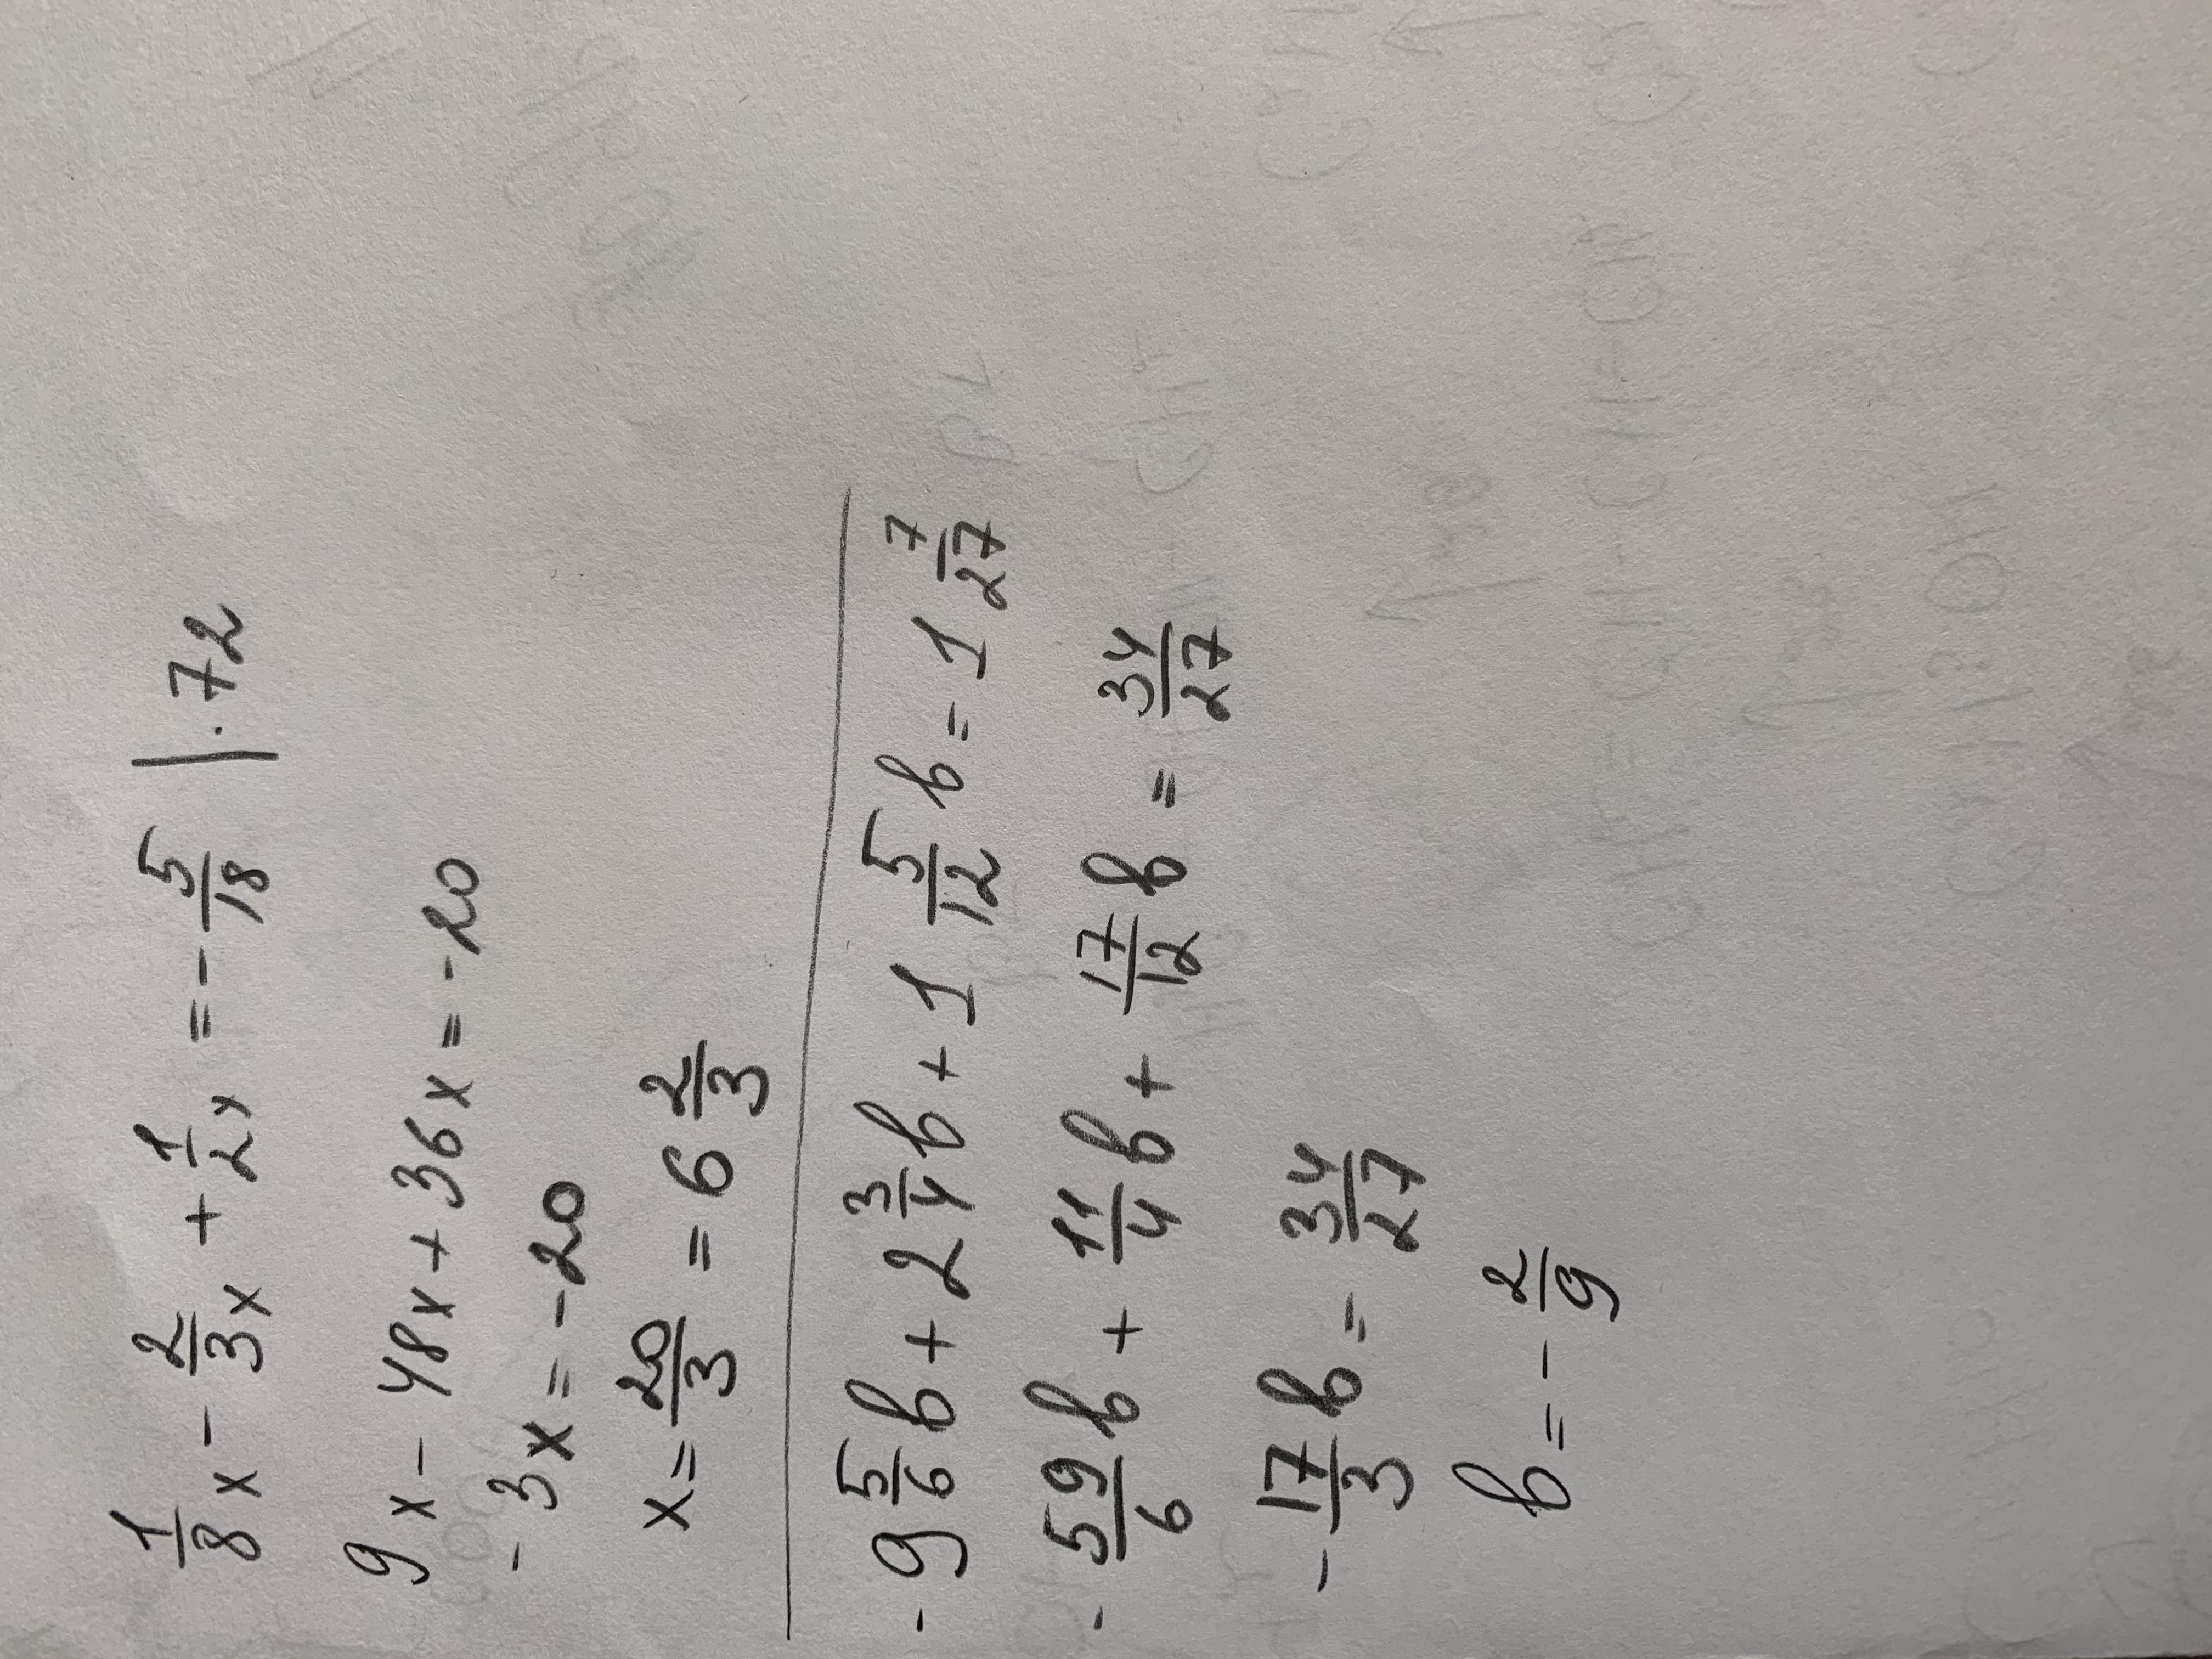 1/8 x - 2/3 x + 1/2 x = - 5/18 | · 72
9x - 48x + 36x = -20
-3x = -20
x = 20/3 = 6 2/3
-9 5/6 b + 2 3/4 b + 1 5/12 b = 1 7/27
-59/6 b + 11/4 b + 17/12 b = 34/27
-17/3 b = 34/27
b = - 2/9